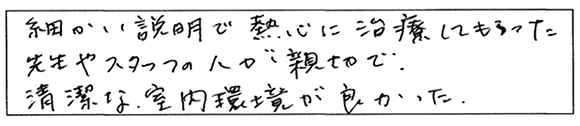 細かい説明で熱心に治療してもらった
先生やスタッフの人が親切で.
清潔な.室内環境が良かった.